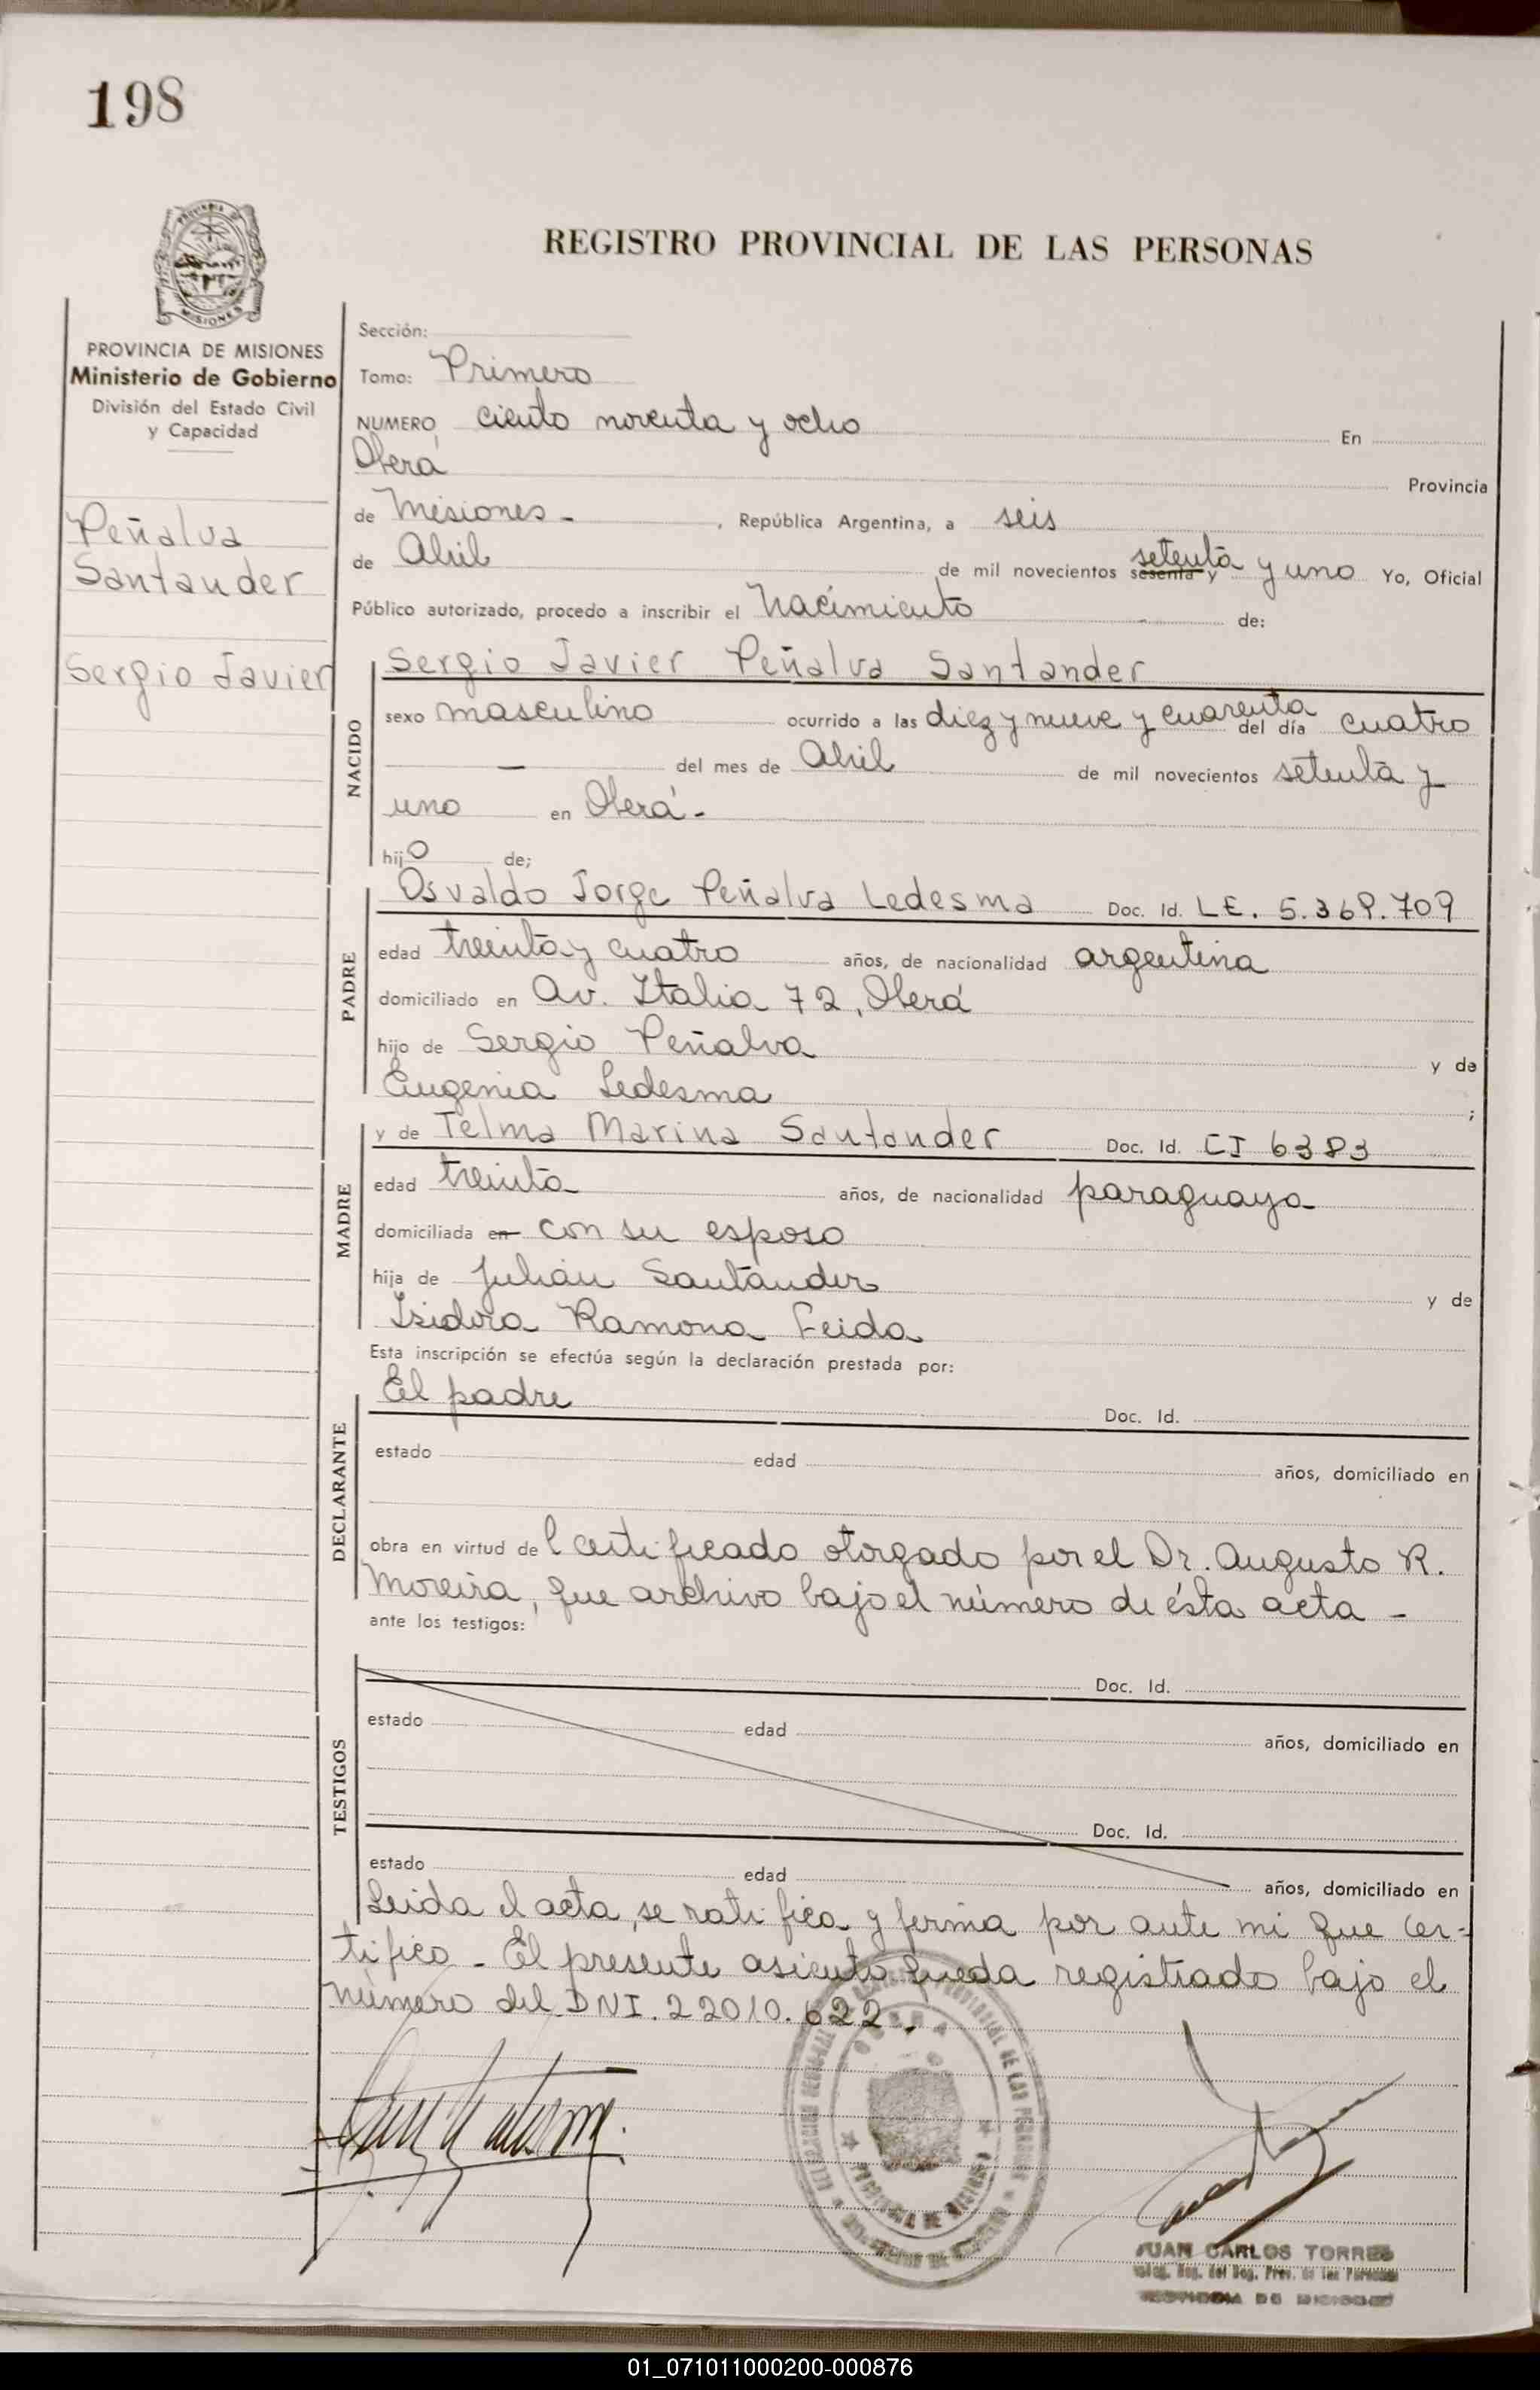 198
PROVINCIA DE
MISIONES
REGISTRO PROVINCIAL DE LAS PERSONAS
PROVINCIA DE MISIONES
Ministerio de Gobierno
División del Estado Civil
y Capacidad
Peñalva
Santander
Sergio Javier
Sección:
Tomo: Primero
NUMERO ciento noventa y ocho En
Oberá Provincia
de Misiones - , República Argentina, a seis
de Abril de mil novecientos sesenta y setenta y uno Yo, Oficial
Público autorizado, procedo a inscribir el Nacimiento de:
NACIDO
Sergio Javier Peñalva Santander
sexo masculino ocurrido a las diez y nueve y cuarenta del día cuatro
— del mes de Abril de mil novecientos setenta y
uno en Oberá -
hijo de;
PADRE
Osvaldo Jorge Peñalva Ledesma Doc. Id. LE. 5.369.709
edad treinta y cuatro años, de nacionalidad argentina
domiciliado en Av. Italia 72, Oberá
hijo de Sergio Peñalva y de
Eugenia Ledesma ;
MADRE
y de Telma Marina Santander Doc. Id. CI 6383
edad treinta años, de nacionalidad paraguaya
domiciliada en con su esposo
hija de Julián Santander y de
Isidora Ramona
Esta inscripción se efectúa según la declaración prestada por:
DECLARANTE
El padre Doc. Id.
estado edad años, domiciliado en
obra en virtud del certificado otorgado por el Dr. Augusto R.
Moreira, que archivo bajo el número de ésta acta -
ante los testigos:
TESTIGOS
Doc. Id.
estado edad años, domiciliado en
Doc. Id.
estado edad años, domiciliado en
Leida el acta, se ratifica y firma por ante mi que cer=
tifico - El presente asiento queda registrado bajo el
número del DNI. 22010.622.
JUAN CARLOS TORRES
01_071011000200-000876